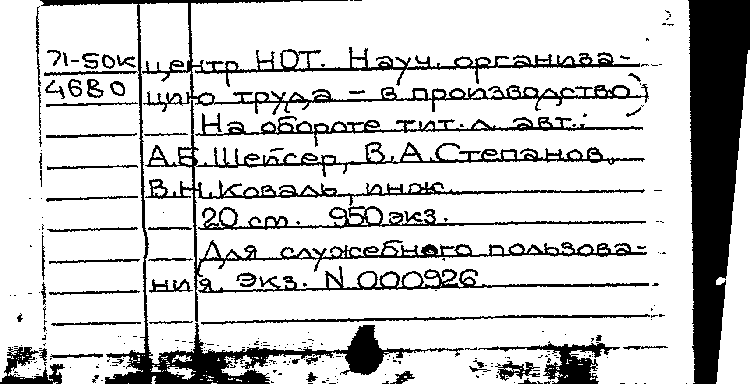 2
71-50к центр НОТ. Науч. организа-
4680 цию труда - в производство)
На обороте тит. л. авт.:
А.Б.Шейсер, В.А.Степанов,
В.Н.Коваль, инж.
20 ст. 950 экз.
Для служебного пользова-
ния. Экз. N 000926